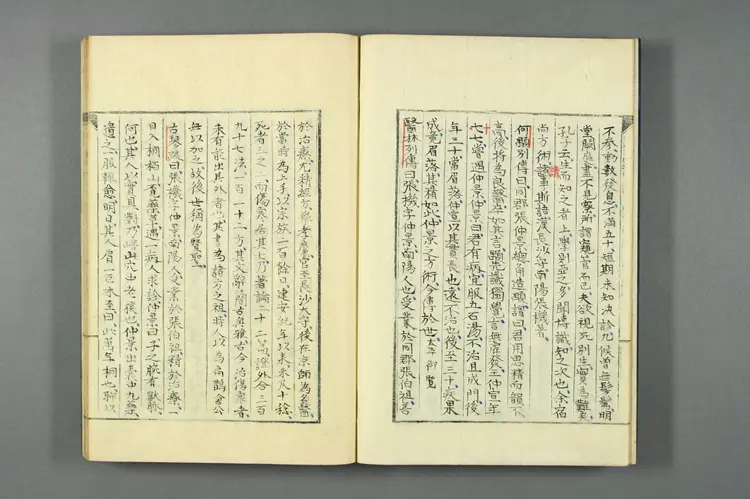 不参動數發息不滿五十短期未知決診九候曽無髣髴明
堂闕庭盡不見察所謂窺管而已夫欲視死別生實為難矣
孔子云生而知之者上學則亞之多聞博識知之次也余宿
尚方術請事斯語漢長沙守南陽張機著
何顒別傳曰同郡張仲景總角造顒謂曰君用思精而韻不
高後將為良醫卒如其言顒先識獨覺言無虛發王仲宣年
十七嘗遇仲景仲景曰君有病宜服五石湯不治且成門後
年三十當眉落仲宣以其賁長也遠不治也後至三十疾果
成竟眉落其精如此仲景之方術今傳於世太平御覽
醫林列傳曰張機字仲景南陽人也受業於同郡張伯祖善
於治療尤精經方舉孝廉官至長沙太守後在京師為名醫
於當時為上手以宗族二百餘口建安紀年以來未及十稔
死者三之二而傷寒居其七乃著論二十二篇證外合三百
九十七法一百一十二方其文辭簡古奧雅古今治傷寒者
未有能出其外者也其書為諸方之祖時人以為扁鵲倉公
無以加之故後世稱為醫聖
古琴疏曰張機字仲景南陽人受業於張伯祖精於治療一
日入桐栢山覓藥草遇一病人求診仲景曰子之腕有獸脉
何也其人以實具對乃嶧山穴中老猿也仲景出囊中丸藥
遺之一服輙愈明日其人肩一巨木至曰此萬年桐也聊以